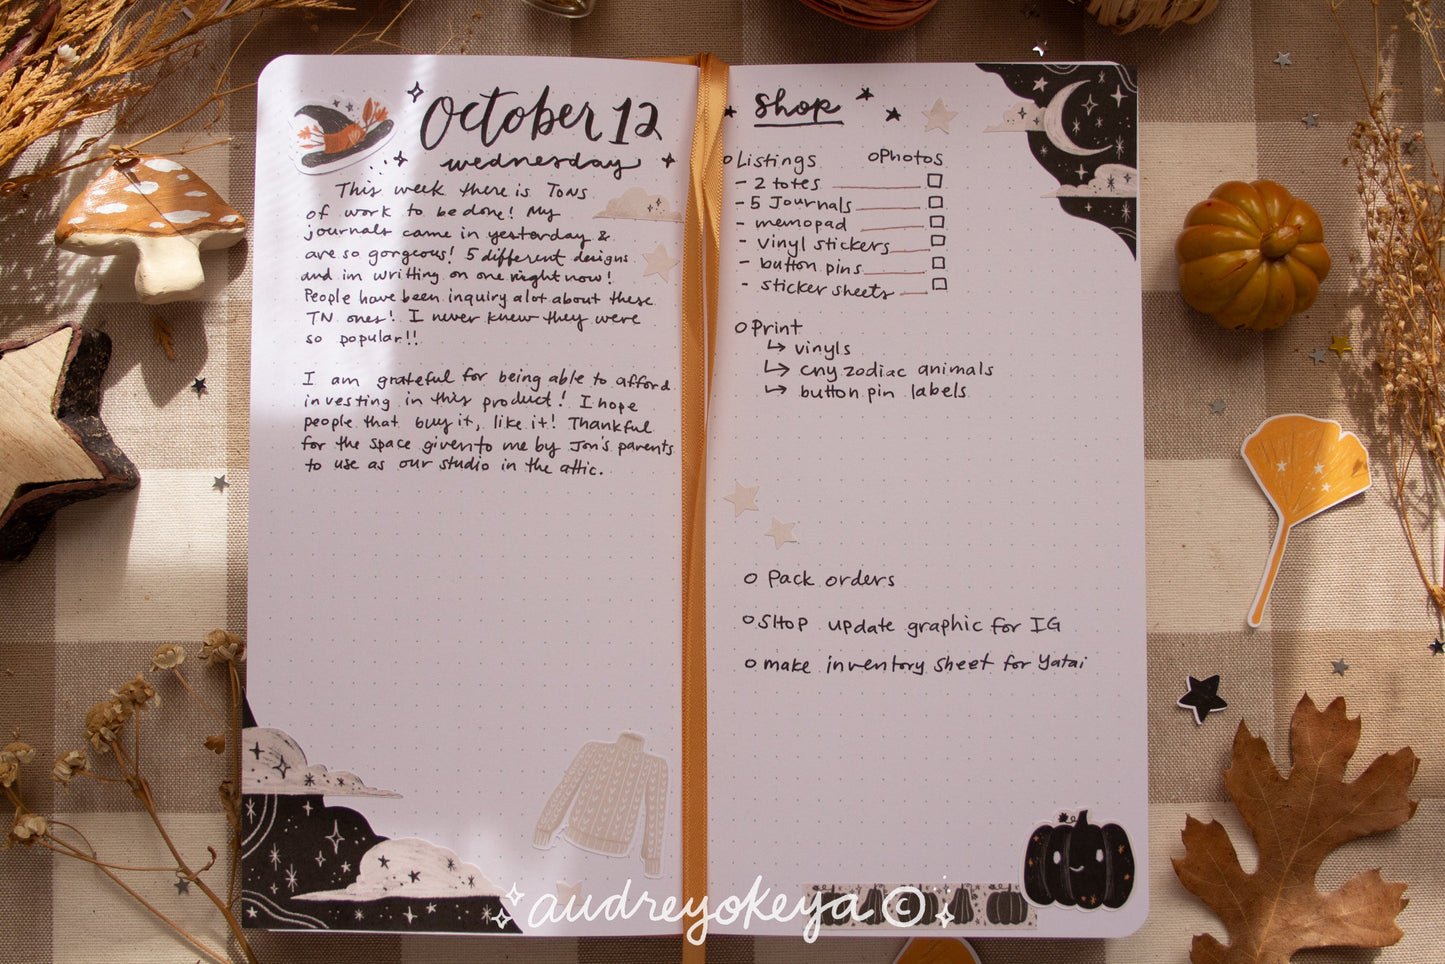 October 12
wednesday
This week there is TONS
of work to be done! My
journals came in yesterday &
are so gorgeous! 5 different designs
and im writting on one right now!
People have been inquiry alot about these
TN ones! I never knew they were
so popular!!
I am grateful for being able to afford
investing in this product! I hope
people that buy it, like it! Thankful
for the space given to me by Jon's parents
to use as our studio in the attic.
Shop
o Listings o Photos
- 2 totes
- 5 Journals
- memopad
- vinyl stickers
- button pins
- sticker sheets
o Print
↳ vinyls
↳ cny zodiac animals
↳ button pin labels
o Pack orders
o SHOP update graphic for IG
o make inventory sheet for Yatai
audreyokeya ©